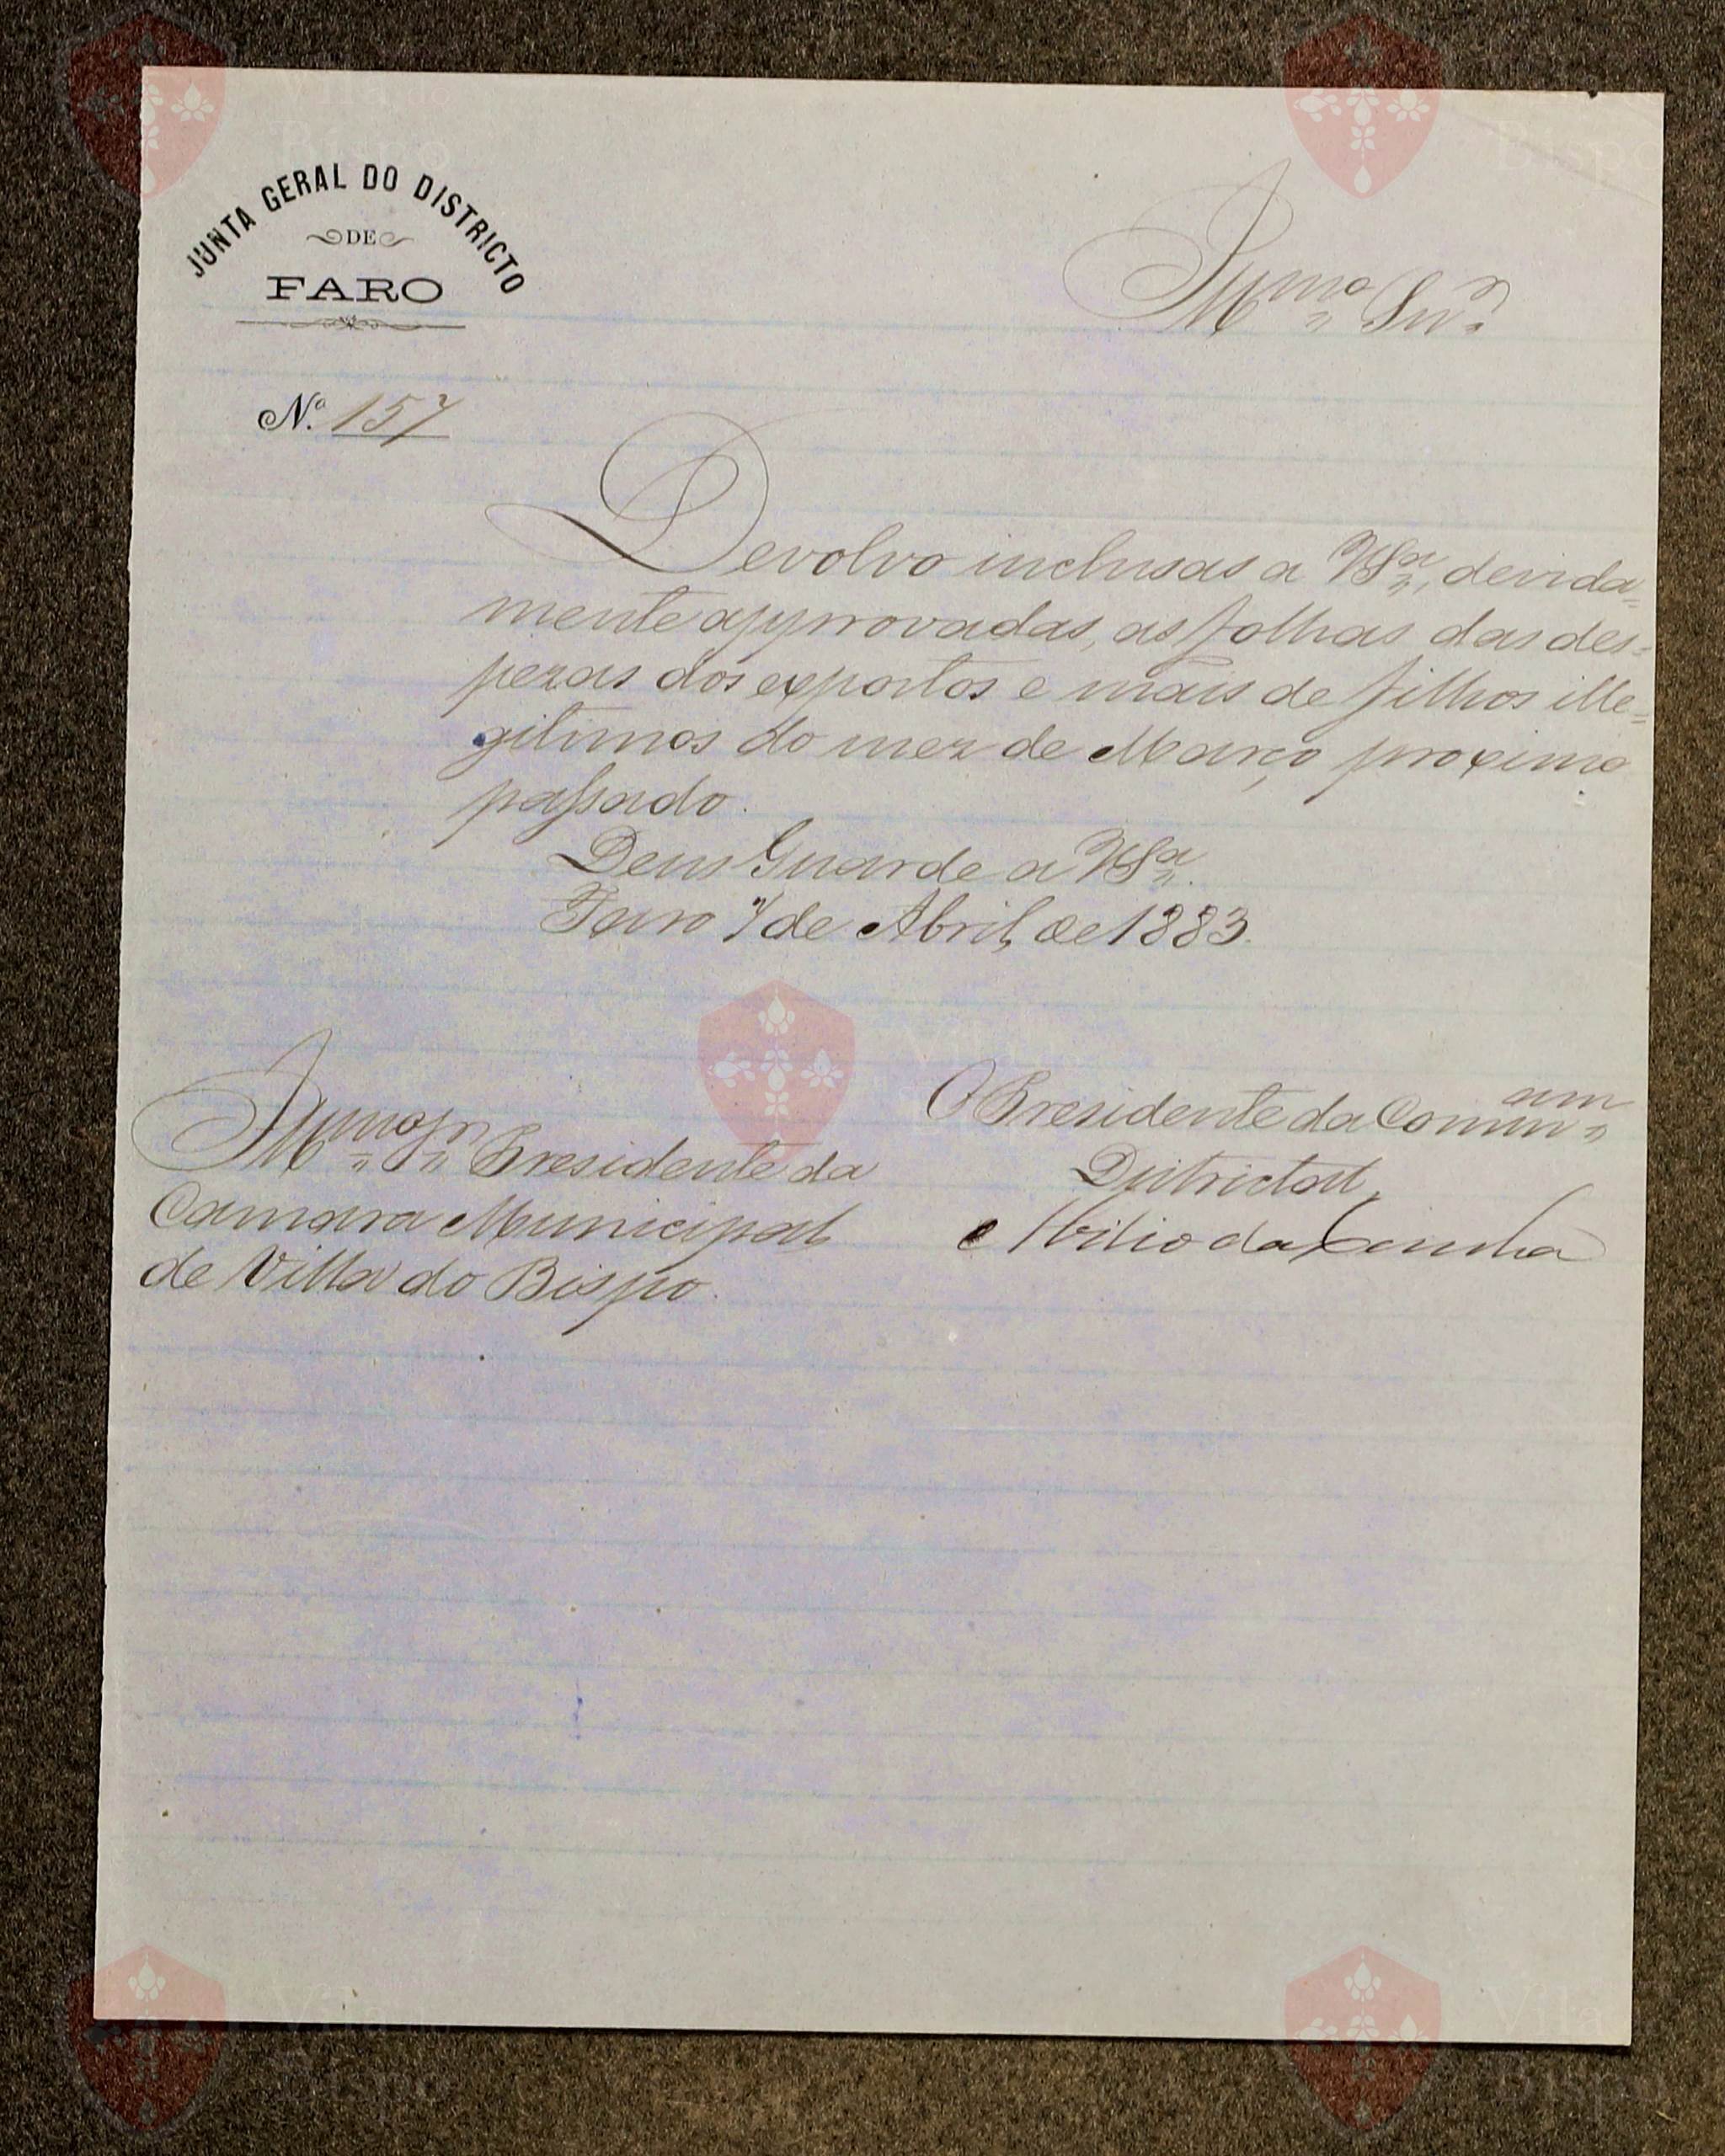 JUNTA GERAL DO DISTRICTO
DE
FARO
Illmo Snr
N.º 157
Devolvo inclusas a VSa, devida=
mente approvadas, as folhas das des=
pezas dos expostos e mais de filhos ille=
gitimos do mez de Março proximo
passado.
Deus Guarde a VSa.
Faro 7 de Abril de 1883.
Illmo Sr Presidente da
Camara Municipal
de Villa do Bispo.
O Presidente da Commam
Districtal,
Abilio da Cunha
Vila do
Bispo